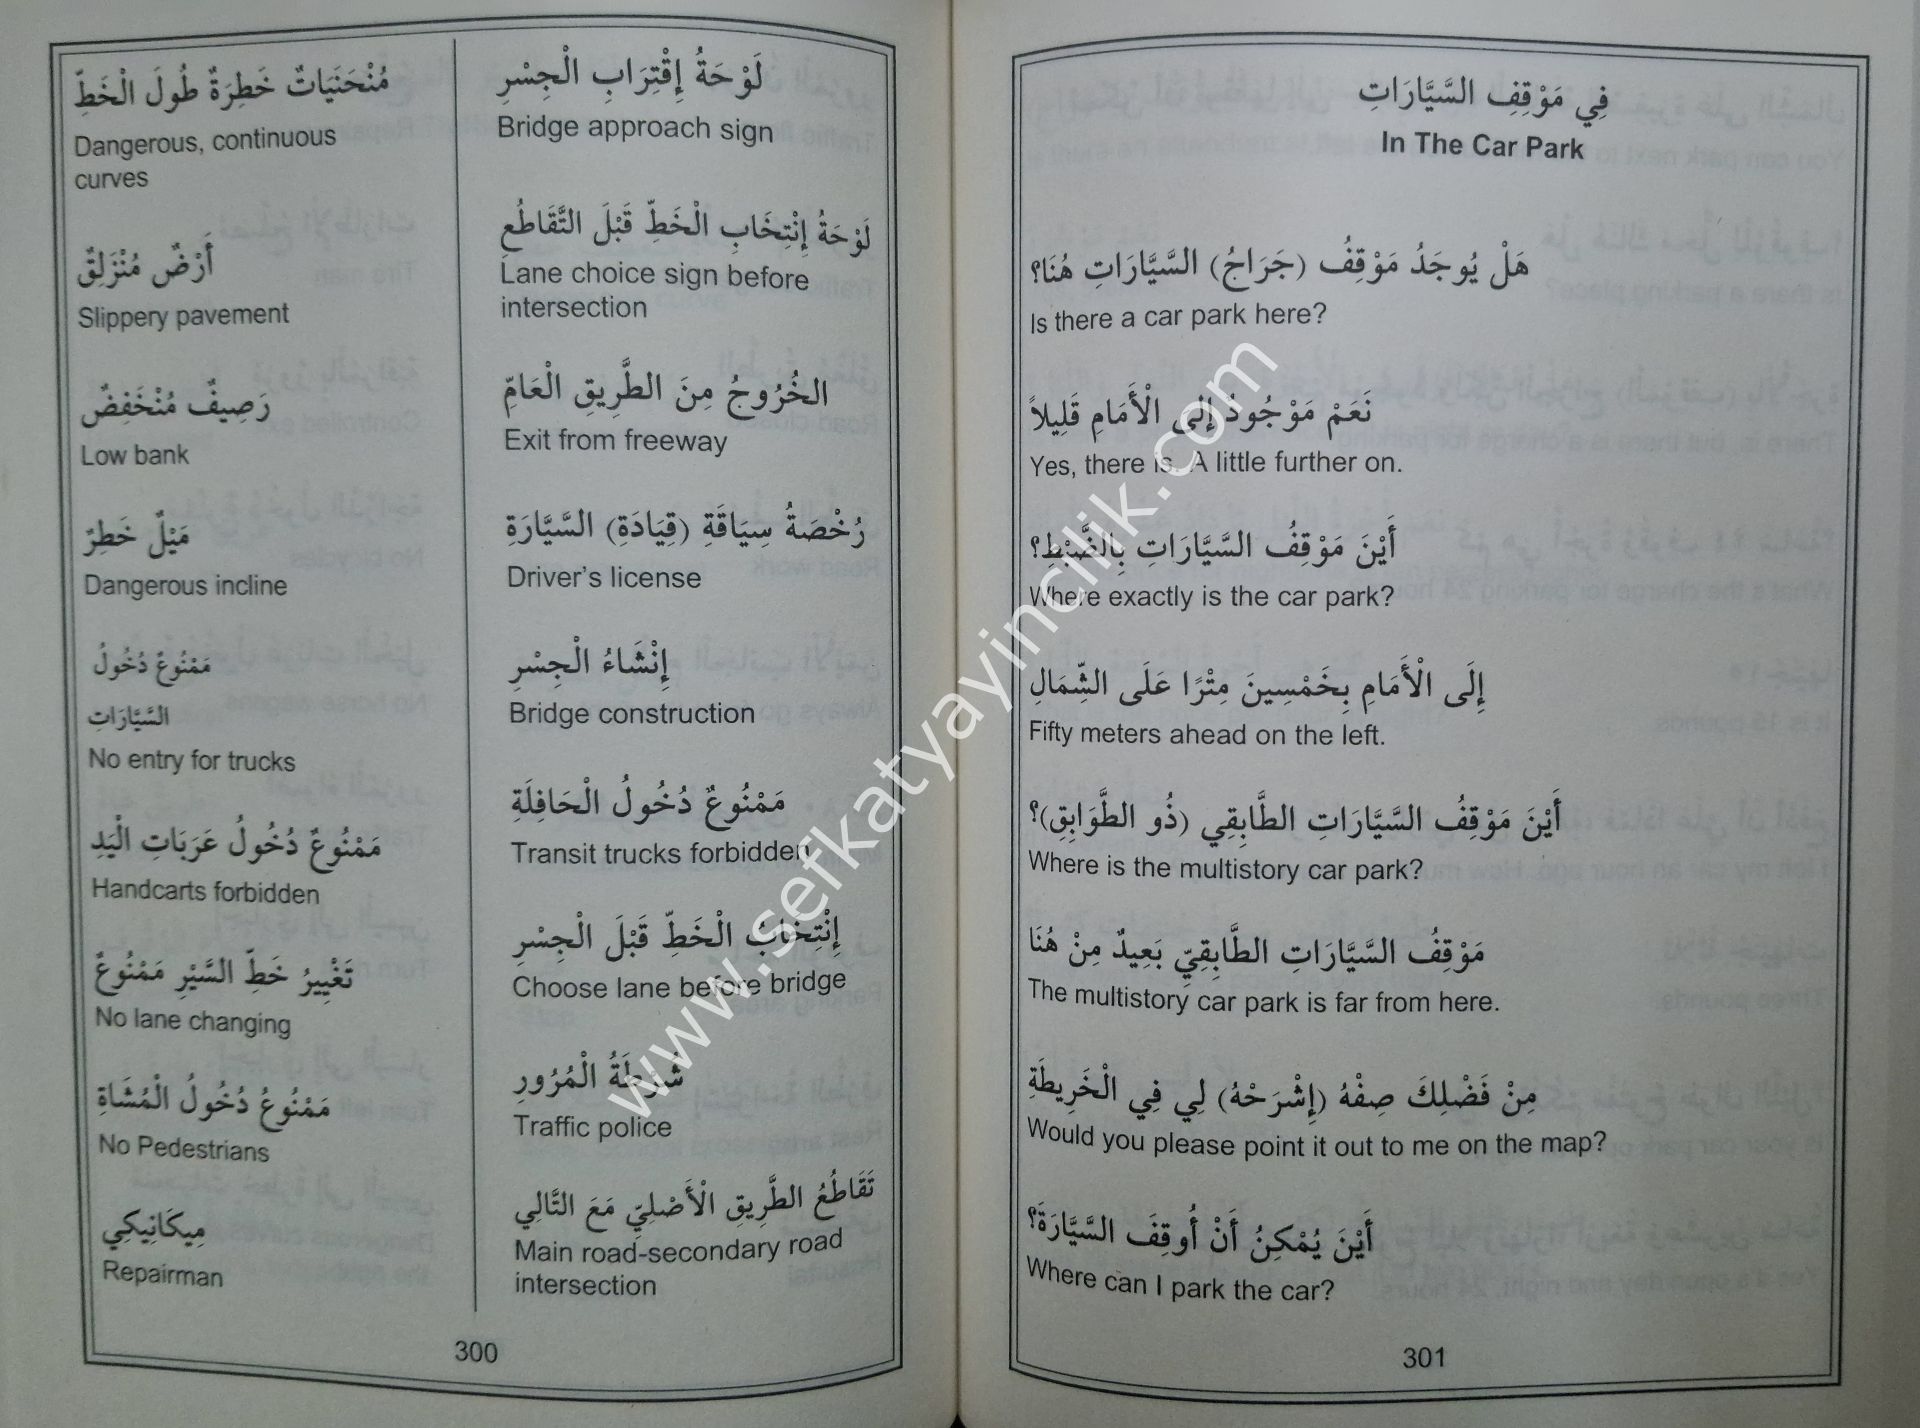 مُنْحَنَيَاتٌ خَطِرَةٌ طُولَ الْخَطِّ
Dangerous, continuous
curves
أَرْضٌ مُنْزَلِقٌ
Slippery pavement
رَصِيفٌ مُنْخَفِضٌ
Low bank
مَيْلٌ خَطِرٌ
Dangerous incline
مَمْنُوعٌ دُخُولُ
السَّيَّارَاتِ
No entry for trucks
مَمْنُوعٌ دُخُولُ عَرَبَاتِ الْيَدِ
Handcarts forbidden
تَغْيِيرُ خَطِّ السَّيْرِ مَمْنُوعٌ
No lane changing
مَمْنُوعُ دُخُولُ الْمُشَاةِ
No Pedestrians
مِيكَانِيكِي
Repairman
لَوْحَةُ إِقْتِرَابِ الْجِسْرِ
Bridge approach sign
لَوْحَةُ إِنْتِخَابِ الْخَطِّ قَبْلَ التَّقَاطُعِ
Lane choice sign before
intersection
الخُرُوجُ مِنَ الطَّرِيقِ الْعَامِّ
Exit from freeway
رُخْصَةُ سِيَاقَةِ (قِيَادَةِ) السَّيَّارَةِ
Driver's license
إِنْشَاءُ الْجِسْرِ
Bridge construction
مَمْنُوعٌ دُخُولُ الْحَافِلَةِ
Transit trucks forbidden
إِنْتِخَابُ الْخَطِّ قَبْلَ الْجِسْرِ
Choose lane before bridge
شُرْطَةُ الْمُرُورِ
Traffic police
تَقَاطُعُ الطَّرِيقِ الْأَصْلِيِّ مَعَ التَّالِي
Main road-secondary road
intersection
300
فِي مَوْقِفِ السَّيَّارَاتِ
In The Car Park
هَلْ يُوجَدُ مَوْقِفُ (جَرَاجُ) السَّيَّارَاتِ هُنَا؟
Is there a car park here?
نَعَمْ مَوْجُودُ إِلى الْأَمَامِ قَلِيلاً
Yes, there is. A little further on.
أَيْنَ مَوْقِفُ السَّيَّارَاتِ بِالضَّبْطِ؟
Where exactly is the car park?
إِلَى الْأَمَامِ بِخَمْسِينَ مِتْرًا عَلَى الشِّمَالِ
Fifty meters ahead on the left.
أَيْنَ مَوْقِفُ السَّيَّارَاتِ الطَّابِقِي (ذُو الطَّوَابِقِ)؟
Where is the multistory car park?
مَوْقِفُ السَّيَّارَاتِ الطَّابِقِيِّ بَعِيدٌ مِنْ هُنَا
The multistory car park is far from here.
مِنْ فَضْلِكَ صِفْهُ (إِشْرَحْهُ) لِي فِي الْخَرِيطَةِ
Would you please point it out to me on the map?
أَيْنَ يُمْكِنُ أَنْ أُوقِفَ السَّيَّارَةَ؟
Where can I park the car?
301
www.sefkatyayincilik.com